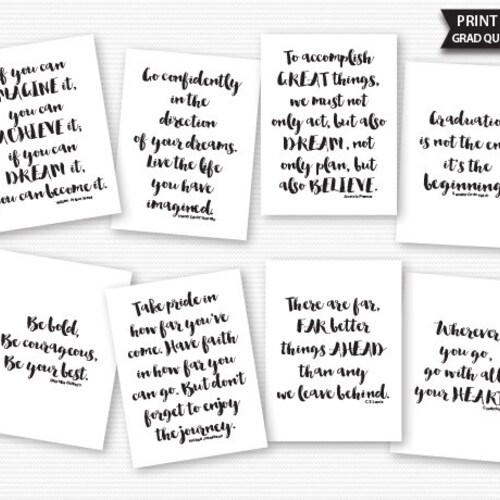 PRINT
GRAD QU
if you can
IMAGINE it,
you can
ACHIEVE it;
if you can
DREAM it,
you can become it.
Go confidently
in the
direction
of your dreams.
Live the life
you have
imagined.
To accomplish
GREAT things,
we must not
only act, but also
DREAM, not
only plan, but
also BELIEVE.
Graduation
is not the end
it's the
beginning
Be bold,
Be courageous,
Be your best.
Take pride in
how far you've
come. Have faith
in how far you
can go. But don't
forget to enjoy
the journey.
There are far,
FAR better
things AHEAD
than any
we leave behind.
C.S Lewis
Wherever
you go,
go with all
your HEART